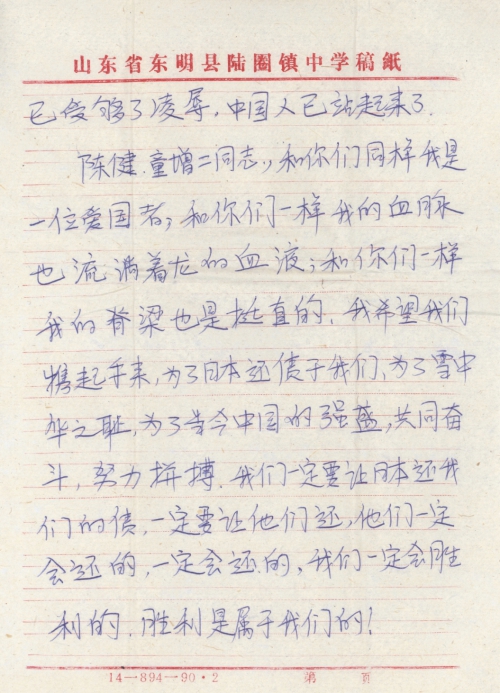 山东省东明县陆圈镇中学稿紙
已受够了凌辱,中国人已站起来了.
陈健.童增二同志,和你们同样我是
一位爱国者;和你们一样我的血脉
也流淌着龙的血液;和你们一样
我的脊梁也是挺直的.我希望我们
携起手来,为了日本还债于我们,为了雪中
华之耻,为了当今中国的强盛,共同奋
斗,努力拼搏.我们一定要让日本还我
们的债,一定要让他们还,他们一定
会还的,一定会还的,我们一定会胜
利的.胜利是属于我们的!
14—894—90·2 第 页